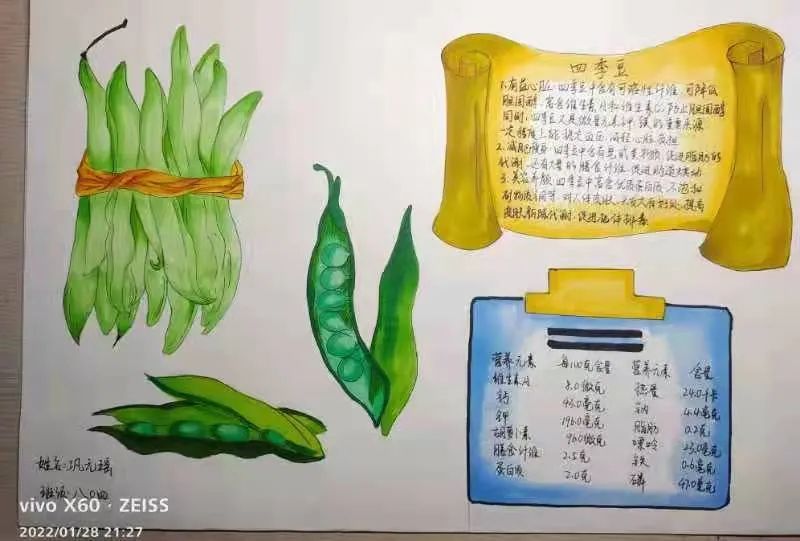 四季豆
1.有益心脏:四季豆中含有可溶性纤维,可降低
胆固醇,富含维生素A和维生素C,防止胆固醇
同时,四季豆又是微量元素钾、镁的重要来源
一定程度上能稳定血压,减轻心脏负担
2.减肥瘦身:四季豆中含有皂甙类物质,促进脂肪的
代谢,还有大量的膳食纤维,促进肠道蠕动
3.美容养颜:四季豆中富含优质蛋白质,不饱和
脂肪酸 对人体皮肤、头发大有好处,提高
皮肤新陈代谢,促进机体排毒
营养元素 每100克含量 营养元素 含量
维生素A 8.0微克 热量 24.0千卡
钙 43.0毫克 钠 4.4毫克
钾 196.0毫克 脂肪 0.2克
胡萝卜素 96.0微克 嘌呤 23.0毫克
膳食纤维 2.5克 铁 0.6毫克
蛋白质 2.0克 磷 47.0毫克
姓名:巩元瑶
班级:八〇四
vivo X60 · ZEISS
2022/01/28 21:27